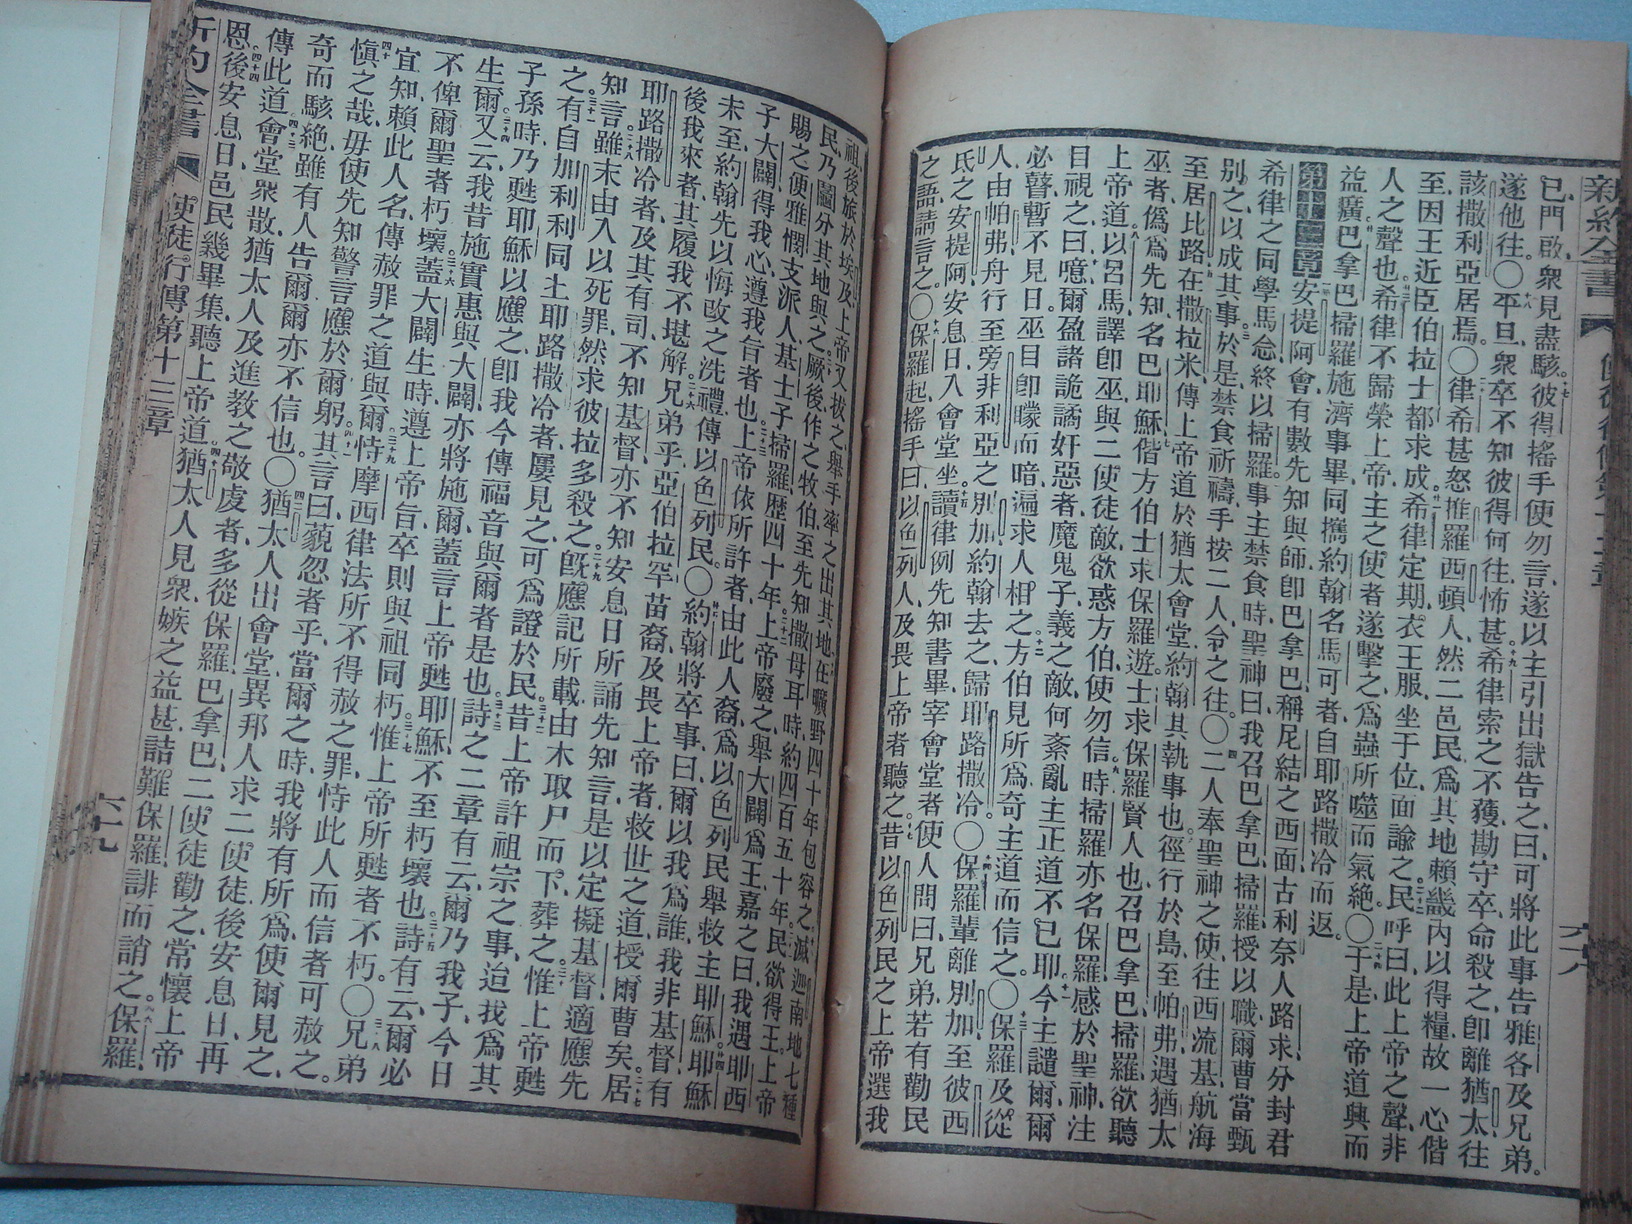 新約全書 使徒行傳第十二章 六十八
已門啟衆見盡駭彼得搖手使勿言遂以主引出獄告之曰可將此事告雅各及兄弟
遂他往〇平旦衆卒不知彼得何往怖甚希律索之不獲勘守卒命殺之卽離猶太往
該撒利亞居焉〇律希甚怒推羅西頓人然二邑民爲其地賴畿內以得糧故一心偕
至因王近臣伯拉士都求成希律定期衣王服坐于位面諭之民呼曰此上帝之聲非
人之聲也希律不歸榮上帝主之使者遂擊之爲蟲所噬而氣絶〇于是上帝道興而
益廣巴拿巴掃羅施濟事畢同攜約翰名馬可者自耶路撒冷而返
第十三章安提阿會有數先知與師卽巴拿巴稱尼結之西面古利奈人路求分封君
希律之同學馬念終以掃羅事主禁食時聖神曰我召巴拿巴掃羅授以職爾曹當甄
別之以成其事於是禁食祈禱手按二人令之往〇二人奉聖神之使往西流基航海
至居比路在撒拉米傳上帝道於猶太會堂約翰其執事也徑行於島至帕弗遇猶太
巫者僞爲先知名巴耶穌偕方伯士求保羅遊士求保羅賢人也召巴拿巴掃羅欲聽
上帝道以呂馬譯卽巫與二使徒敵欲惑方伯使勿信時掃羅亦名保羅感於聖神注
目視之曰噫爾盈諸詭譎奸惡者魔鬼子義之敵何紊亂主正道不已耶今主譴爾爾
必瞽暫不見日巫目卽矇而暗遍求人相之方伯見所爲奇主道而信之〇保羅及從
人由帕弗舟行至旁非利亞之別加約翰去之歸耶路撒冷〇保羅輩離別加至彼西
氏之安提阿安息日入會堂坐讀律例先知書畢宰會堂者使人問曰兄弟若有勸民
之語請言之〇保羅起搖手曰以色列人及畏上帝者聽之昔以色列民之上帝選我
祖後旅於埃及上帝又拔之舉手率之出其地在曠野四十年包容之滅迦南地七種
民乃鬮分其地與之厥後作之牧伯至先知撒母耳時約四百五十年民欲得王上帝
賜之便雅憫支派人基士子掃羅歷四十年上帝廢之舉大闢爲王嘉之曰我遇耶西
子大闢得我心遵我旨者也上帝依所許者由此人裔爲以色列民舉救主耶穌耶穌
未至約翰先以悔改之洗禮傳以色列民〇約翰將卒事曰爾以我爲誰我非基督有
後我來者其履我不堪解兄弟乎亞伯拉罕苗裔及畏上帝者救世之道授爾曹矣居
耶路撒冷者及其有司不知基督亦不知安息日所誦先知言是以定擬基督適應先
知言雖未由入以死罪然求彼拉多殺之旣應記所載由木取尸而下葬之惟上帝甦
之有自加利利同上耶路撒冷者屢見之可爲證於民昔上帝許祖宗之事迨我爲其
子孫時乃甦耶穌以應之卽我今傳福音與爾者是也詩之二章有云爾乃我子今日
生爾又云我昔施實惠與大闢亦將施爾蓋言上帝甦耶穌不至朽壞也詩有云爾必
不俾爾聖者朽壞蓋大闢生時遵上帝旨卒則與祖同朽惟上帝所甦者不朽〇兄弟
宜知賴此人名傳赦罪之道與爾恃摩西律法所不得赦之罪恃此人而信者可赦之
愼之哉毋使先知警言應於爾躬其言曰藐忽者乎當爾之時我將有所爲使爾見之
奇而駭絶雖有人告爾爾亦不信也〇猶太人出會堂異邦人求二使徒後安息日再
傳此道會堂衆散猶太人及進教之敬虔者多從保羅巴拿巴二使徒勸之常懷上帝
恩後安息日邑民幾畢集聽上帝道猶太人見衆嫉之益甚詰難保羅誹而誚之保羅
新約全書 使徒行傳第十三章 六十九